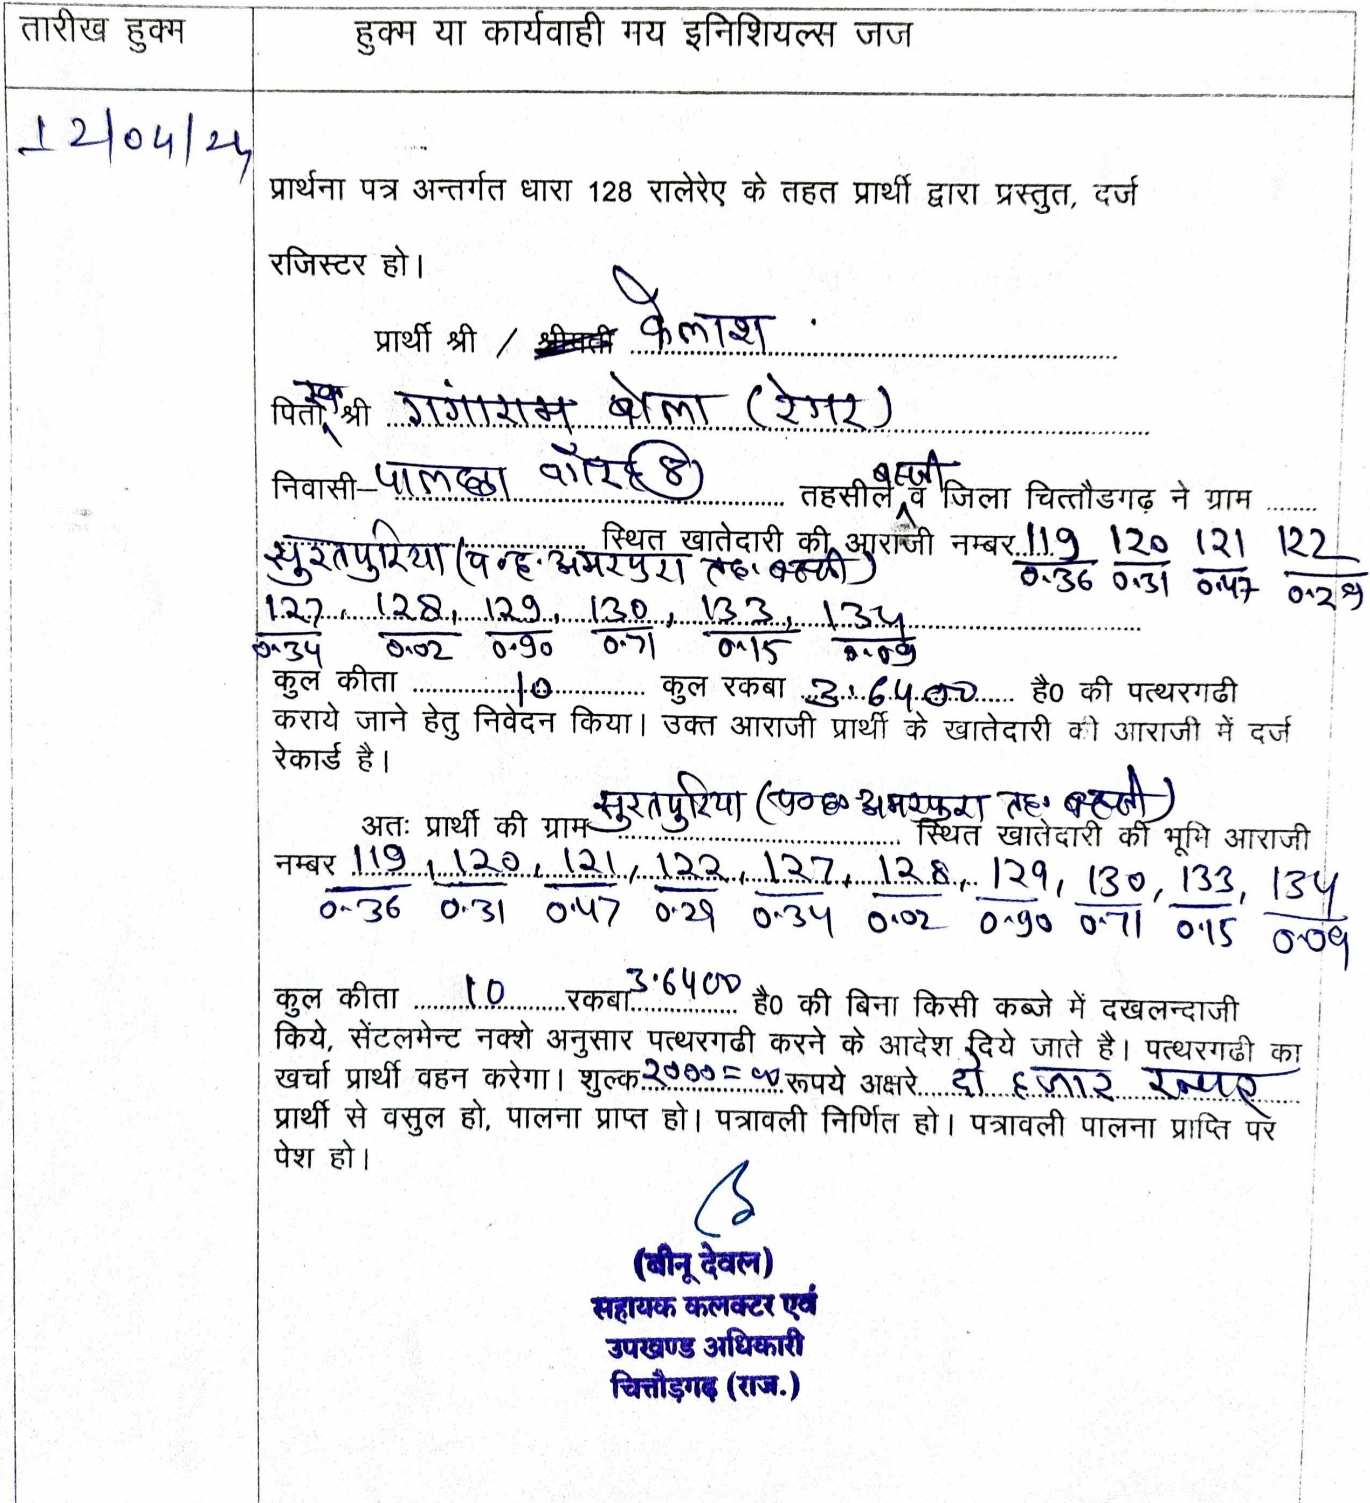 तारीख हुक्म
हुक्म या कार्यवाही मय इनिशियल्स जज
12/04/24
प्रार्थना पत्र अन्तर्गत धारा 128 रालेरेए के तहत प्रार्थी द्वारा प्रस्तुत, दर्ज
रजिस्टर हो।
प्रार्थी श्री / श्रीमती कैलाश
पिता स्व. श्री गंगाराम बोला (रेगर)
निवासी- पालछा वॉर्ड 8 तहसील बस्सी व जिला चित्तौडगढ़ ने ग्राम
सुरतपुरिया (प०ह. अमरपुरा तह. बस्सी) स्थित खातेदारी की आराजी नम्बर 119 120 121 122
0.36 0.31 0.47 0.29
127, 128, 129, 130, 133, 134
0.34 0.02 0.90 0.71 0.15 0.09
कुल कीता 10 कुल रकबा 3.6400 है0 की पत्थरगढी
कराये जाने हेतु निवेदन किया। उक्त आराजी प्रार्थी के खातेदारी की आराजी में दर्ज
रेकार्ड है।
अतः प्रार्थी की ग्राम सुरतपुरिया (प०ह० अमरपुरा तह. बस्सी) स्थित खातेदारी की भूमि आराजी
नम्बर 119, 120, 121, 122, 127, 128, 129, 130, 133, 134
0.36 0.31 0.47 0.29 0.34 0.02 0.90 0.71 0.15 0.09
कुल कीता 10 रकबा 3.6400 है0 की बिना किसी कब्जे में दखलन्दाजी
किये, सेंटलभेन्ट नक्शे अनुसार पत्थरगढी करने के आदेश दिये जाते है। पत्थरगढी का
खर्चा प्रार्थी वहन करेगा। शुल्क 2000=00 रूपये अक्षरे दो हजार रूपए
प्रार्थी से वसुल हो, पालना प्राप्त हो। पत्रावली निर्णित हो। पत्रावली पालना प्राप्ति पर
पेश हो।
(बीनू देवल)
सहायक कलक्टर एवं
उपखण्ड अधिकारी
चित्तौड़गढ़ (राज.)